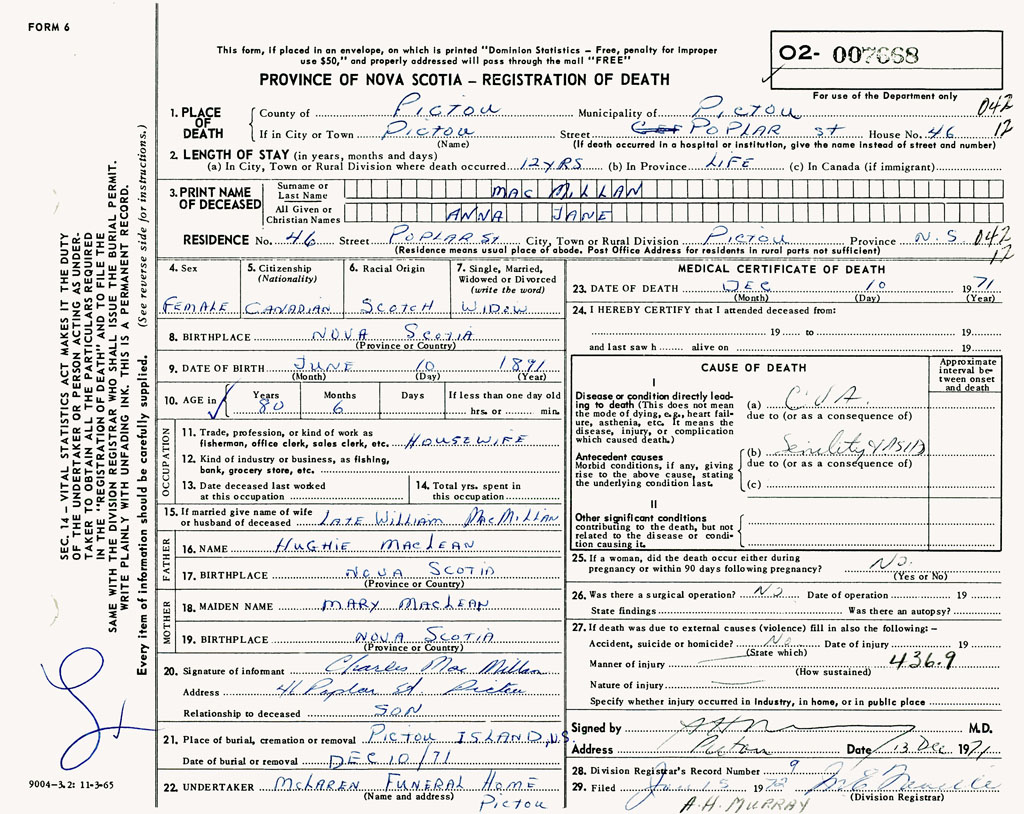 FORM 6
This form, if placed in an envelope, on which is printed "Dominion Statistics – Free, penalty for improper
use $50," and properly addressed will pass through the mail "FREE"
PROVINCE OF NOVA SCOTIA – REGISTRATION OF DEATH
O2- 007668
For use of the Department only
1. PLACE OF DEATH
County of PICTOU Municipality of PICTOU 042
If in City or Town PICTOU Street POPLAR St House No. 46 12
(Name) (If death occurred in a hospital or institution, give the name instead of street and number)
2. LENGTH OF STAY (in years, months and days)
(a) In City, Town or Rural Division where death occurred 12 YRS (b) In Province LIFE (c) In Canada (if immigrant)
3. PRINT NAME OF DECEASED
Surname or Last Name MACMILLAN
All Given or Christian Names ANNA JANE
RESIDENCE No. 46 Street POPLAR St City, Town or Rural Division PICTOU Province N.S 042
(Residence means usual place of abode. Post Office Address for residents in rural parts not sufficient) 12
4. Sex FEMALE
5. Citizenship (Nationality) CANADIAN
6. Racial Origin SCOTCH
7. Single, Married, Widowed or Divorced (write the word) WIDOW
8. BIRTHPLACE NOVA SCOTIA
(Province or Country)
9. DATE OF BIRTH JUNE 10 1891
(Month) (Day) (Year)
10. AGE in Years 80 Months 6 Days If less than one day old hrs. or min.
OCCUPATION
11. Trade, profession, or kind of work as
fisherman, office clerk, sales clerk, etc. HOUSEWIFE
12. Kind of industry or business, as fishing,
bank, grocery store, etc.
13. Date deceased last worked at this occupation
14. Total yrs. spent in this occupation
15. If married give name of wife
or husband of deceased LATE WILLIAM MACMILLAN
FATHER
16. NAME HUGHIE MACLEAN
17. BIRTHPLACE NOVA SCOTIA
(Province or Country)
MOTHER
18. MAIDEN NAME MARY MACLEAN
19. BIRTHPLACE NOVA SCOTIA
(Province or Country)
20. Signature of informant Charles Mac Millan
Address 46 Poplar St. Pictou
Relationship to deceased SON
21. Place of burial, cremation or removal PICTOU ISLAND, N.S
Date of burial or removal DEC 10/71
22. UNDERTAKER McLAREN FUNERAL HOME
(Name and address) PICTOU
MEDICAL CERTIFICATE OF DEATH
23. DATE OF DEATH DEC 10 1971
(Month) (Day) (Year)
24. I HEREBY CERTIFY that I attended deceased from:
19 to 19
and last saw h alive on 19
CAUSE OF DEATH
Approximate interval between onset and death
I
Disease or condition directly lead-
ing to death (This does not mean
the mode of dying, e.g., heart fail-
ure, asthenia, etc. It means the
disease, injury, or complication
which caused death.)
(a) C.V.A.
due to (or as a consequence of)
Antecedent causes
Morbid conditions, if any, giving
rise to the above cause, stating
the underlying condition last.
(b) Senility & ASHD
due to (or as a consequence of)
(c)
II
Other significant conditions
contributing to the death, but not
related to the disease or condi-
tion causing it.
25. If a woman, did the death occur either during
pregnancy or within 90 days following pregnancy? No.
(Yes or No)
26. Was there a surgical operation? No Date of operation 19
State findings Was there an autopsy?
27. If death was due to external causes (violence) fill in also the following: –
Accident, suicide or homicide? No Date of injury 19
(State which)
Manner of injury 436.9
(How sustained)
Nature of injury
Specify whether injury occurred in industry, in home, or in public place
Signed by M.D.
Address Pictou Date 13 Dec 1971
28. Division Registrar's Record Number 9
29. Filed Jan 15 1972
(Division Registrar)
A.H. MURRAY
SEC. 14 – VITAL STATISTICS ACT MAKES IT THE DUTY
OF THE UNDERTAKER OR PERSON ACTING AS UNDER-
TAKER TO OBTAIN ALL THE PARTICULARS REQUIRED
IN THE "REGISTRATION OF DEATH" AND TO FILE THE
SAME WITH THE DIVISION REGISTRAR WHO SHALL ISSUE THE BURIAL PERMIT.
WRITE PLAINLY WITH UNFADING INK. THIS IS A PERMANENT RECORD.
Every item of information should be carefully supplied. (See reverse side for instructions.)
9004–3.2: 11-3-65